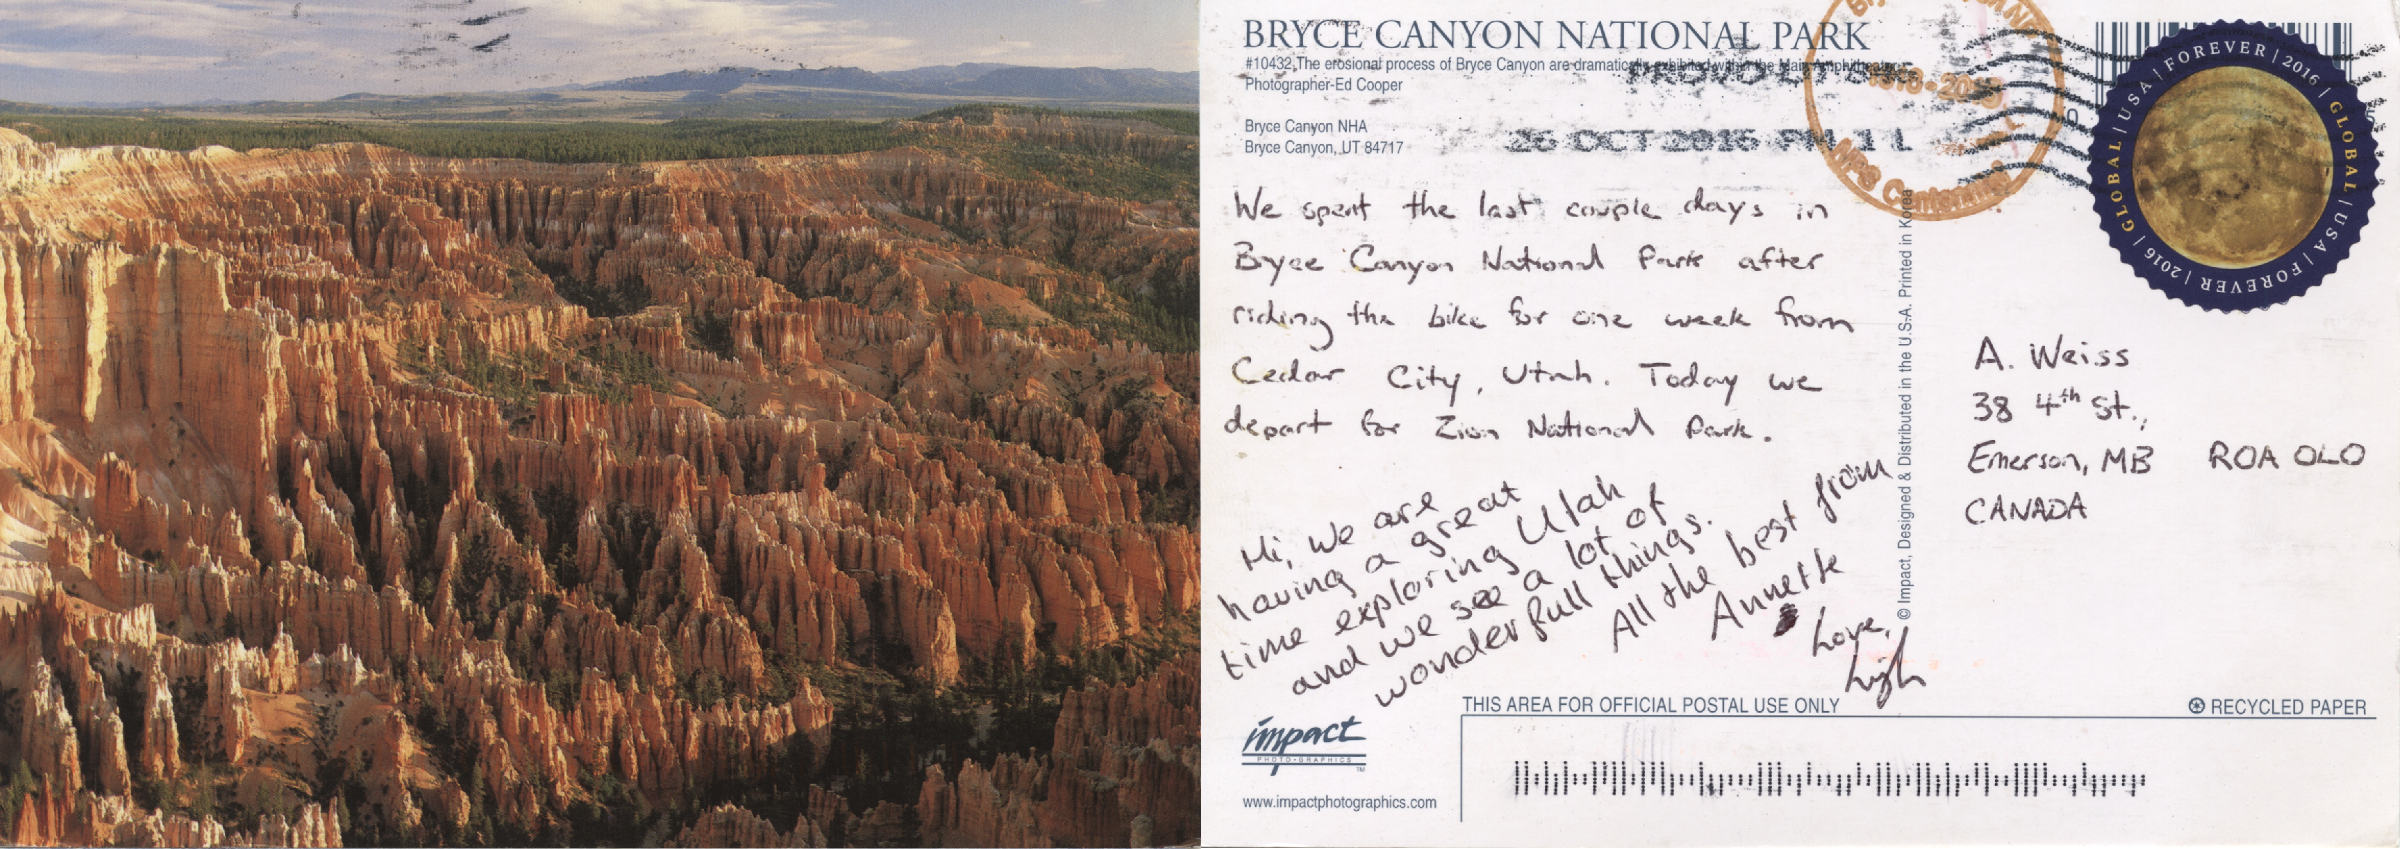 BRYCE CANYON NATIONAL PARK
#10432 The erosional process of Bryce Canyon are dramatically exhibited within the Main Amphitheater.
Photographer-Ed Cooper
Bryce Canyon NHA
Bryce Canyon, UT 84717
PROVO UT
26 OCT 2016 PM 1 L
NPS Centennial
GLOBAL | USA | FOREVER | 2016 | GLOBAL | USA | FOREVER | 2016 |
We spent the last couple days in
Bryce Canyon National Park after
riding the bike for one week from
Cedar City, Utah. Today we
depart for Zion National Park.
Hi, we are
having a great
time exploring Utah
and we see a lot of
wonderfull things.
All the best from
Annette
Love,
© Impact, Designed & Distributed in the U.S.A. Printed in Korea
A. Weiss
38 4th St.,
Emerson, MB ROA OLO
CANADA
THIS AREA FOR OFFICIAL POSTAL USE ONLY
RECYCLED PAPER
impact
PHOTO-GRAPHICS
TM
www.impactphotographics.com